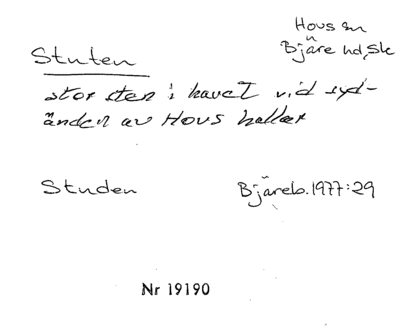 Hovs sn
Bjäre hd, Sk
Stuten
stor sten i havet vid syd-
änden av Hovs hallar
Studen
Bjäreb. 1977:29
Nr 19190